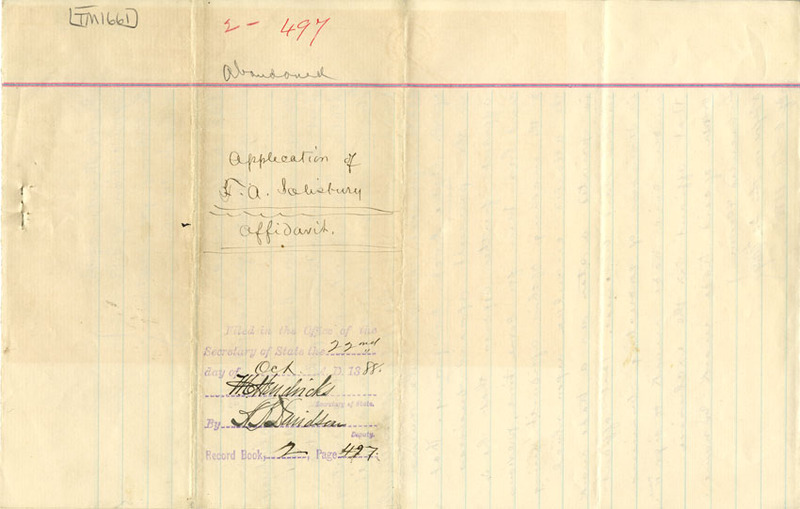 [TM1661]
2 - 497
Abandoned
Application of
F. A. Solisbury
Affidavit.
Filed in the Office of the
Secretary of State the 22nd
day of Oct. A. D. 1888.
W C Hendricks
Secretary of State.
By L B Davidson
Deputy.
Record Book, 2, Page 497.